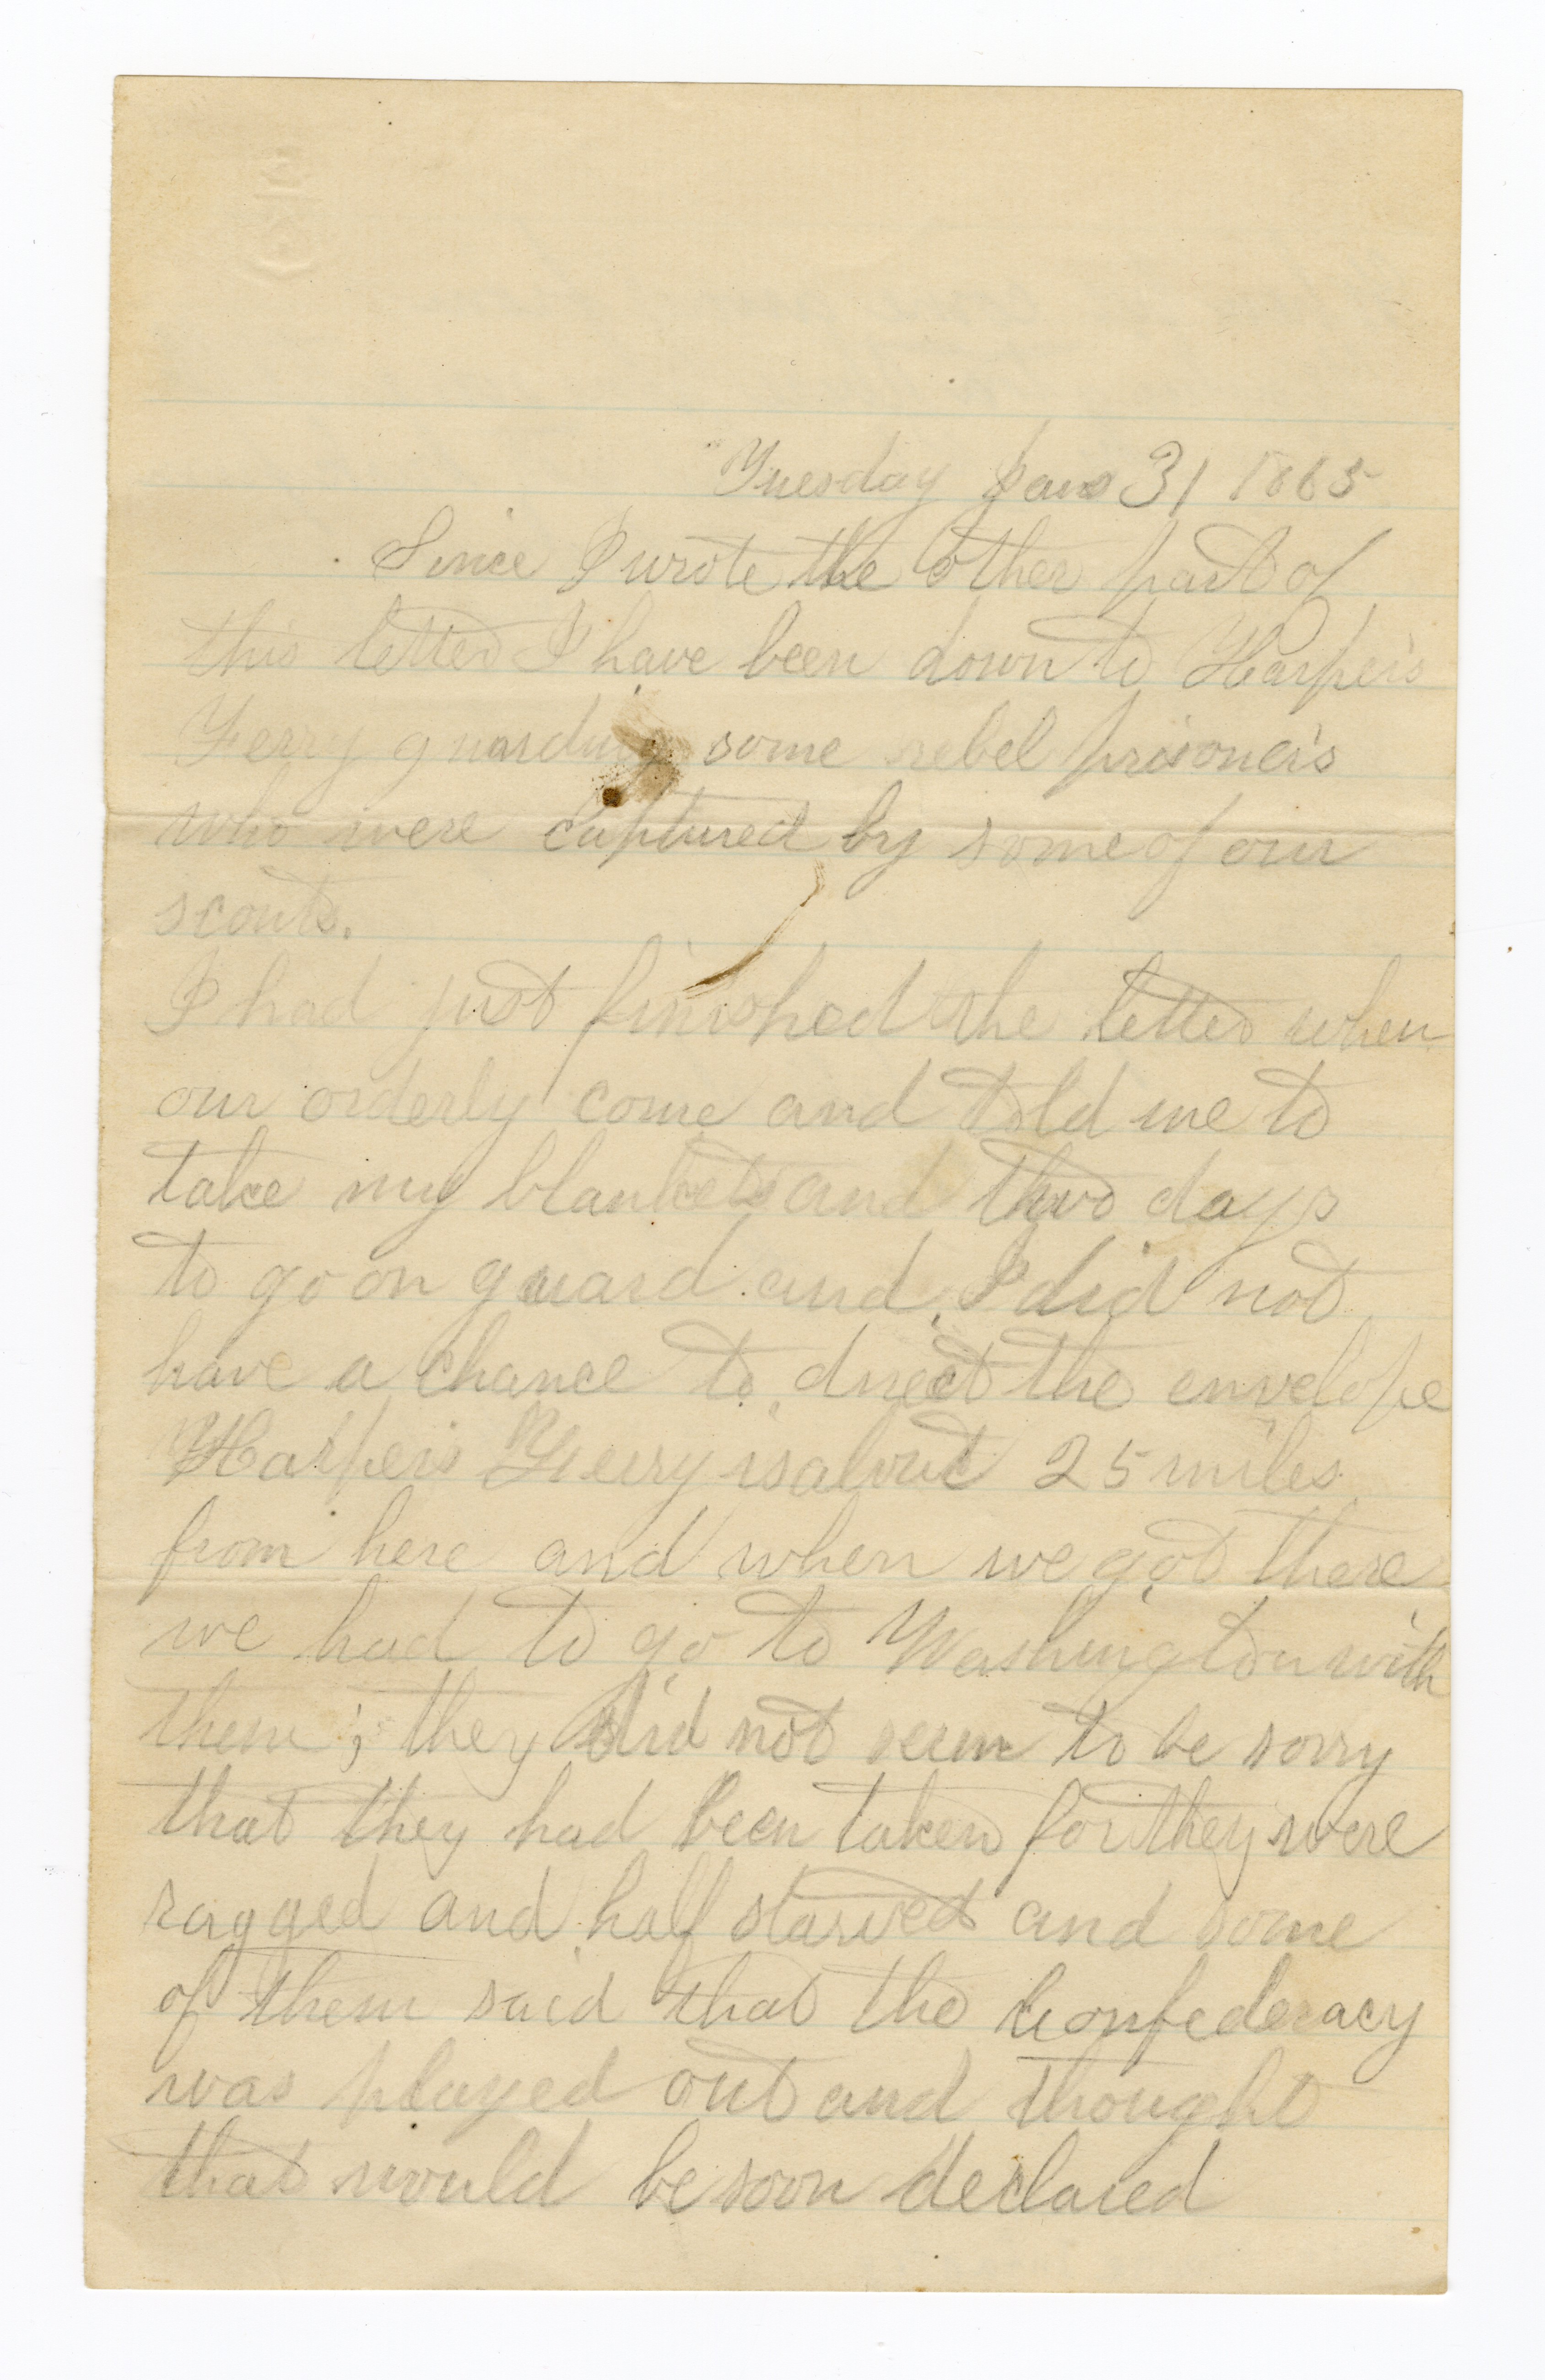 Tuesday Jan 31 1865
Since I wrote the other part of
this letter I have been down to Harper's
Ferry guarding some rebel prisoner's
who were captured by some of our
scouts.
I had just finished the letter when
our orderly come and told me to
take my blankets and two days
to go on guard and I did not
have a chance to direct the envelope
Harper's Ferry is about 25 miles
from here and when we got there
we had to go to Washington with
them; they did not seem to be sorry
that they had been taken for they were
ragged and half starved and some
of them said that the Confederacy
was played out and thought
that would be soon declared